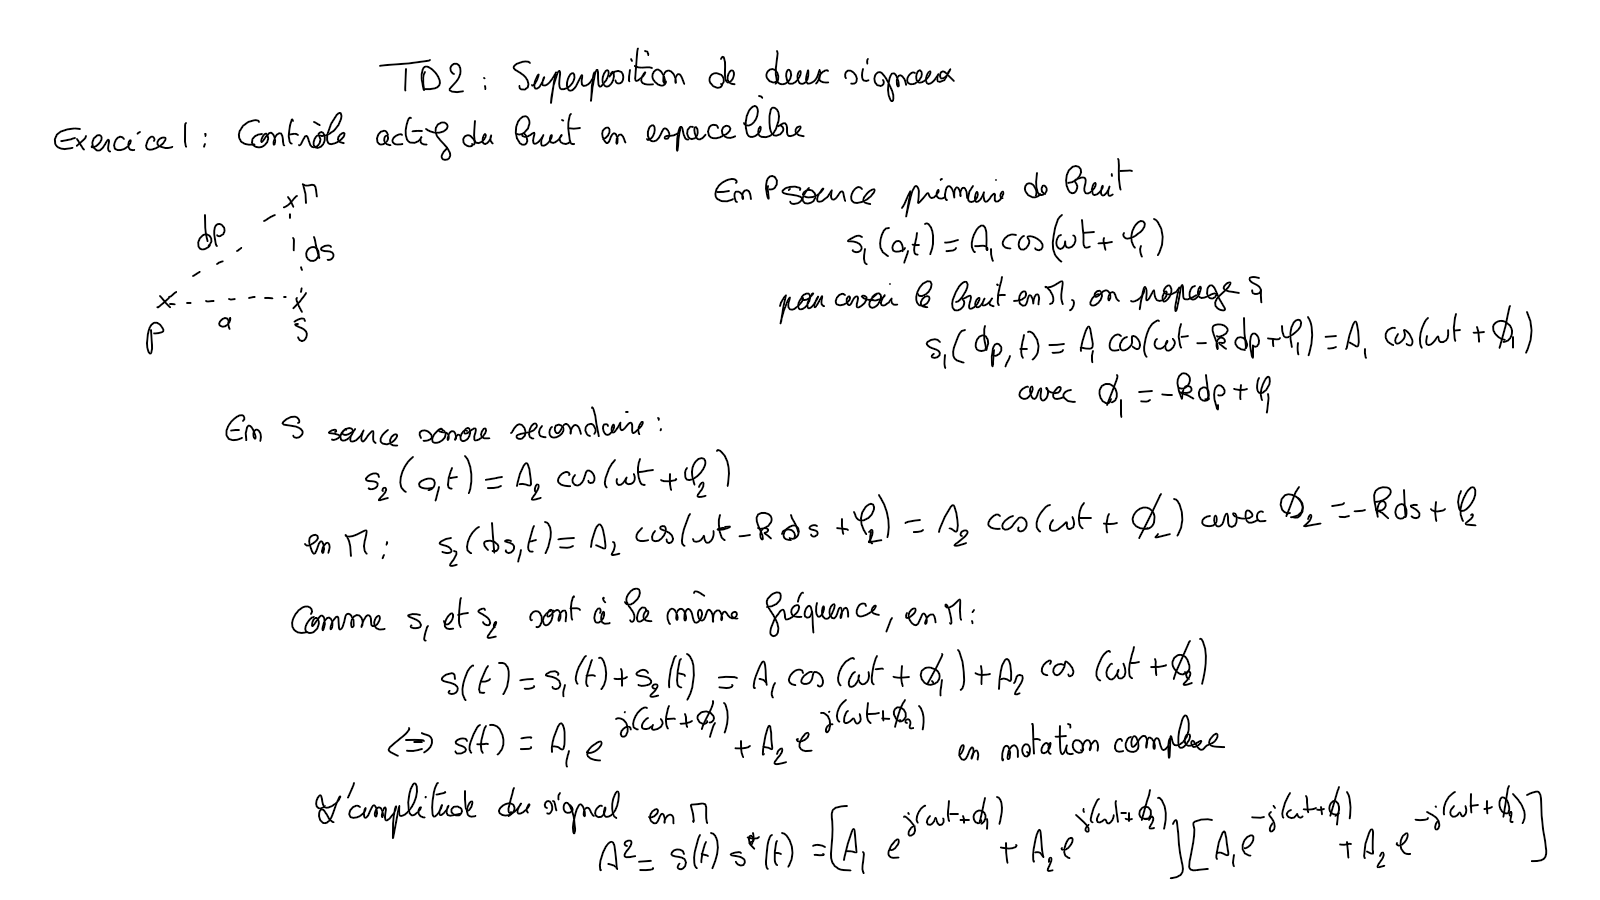 TD2 : Superposition de deux signaux
Exercice 1 : Contrôle actif du bruit en espace libre
M
dp
ds
a
P
S
En P source primaire de bruit
s₁(0,t) = A₁ cos(ωt + φ₁)
pour avoir le bruit en M, on propage s₁
s₁(dp,t) = A₁ cos(ωt - k dp + φ₁) = A₁ cos(ωt + ϕ₁)
avec ϕ₁ = -k dp + φ₁
En S source sonore secondaire :
s₂(0,t) = A₂ cos(ωt + φ₂)
en M : s₂(ds,t) = A₂ cos(ωt - k ds + φ₂) = A₂ cos(ωt + ϕ₂) avec ϕ₂ = -k ds + φ₂
Comme s₁ et s₂ sont à la même fréquence, en M :
s(t) = s₁(t) + s₂(t) = A₁ cos(ωt + ϕ₁) + A₂ cos(ωt + ϕ₂)
<=> s(t) = A₁ e^{j(ωt+ϕ₁)} + A₂ e^{j(ωt+ϕ₂)} en notation complexe
L'amplitude du signal en M
A² = s(t) s*(t) = [A₁ e^{j(ωt+ϕ₁)} + A₂ e^{j(ωt+ϕ₂)}][A₁ e^{-j(ωt+ϕ₁)} + A₂ e^{-j(ωt+ϕ₂)}]